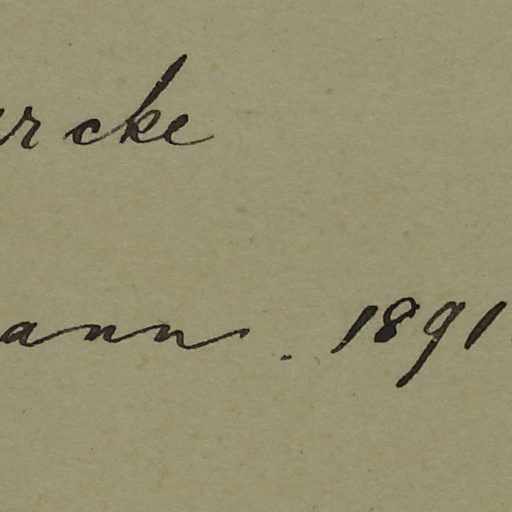 rcke
ann. 1891.